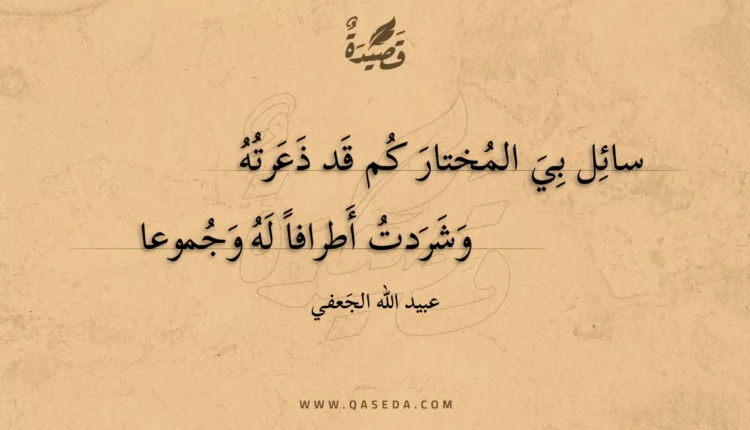 قَصِيدَةٌ
سائِل بِيَ المُختارَ كُم قَد ذَعَرتُهُ
وَشَرَدتُ أَطرافاً لَهُ وَجُموعا
عبيد الله الجَعفي
WWW.QASEDA.COM